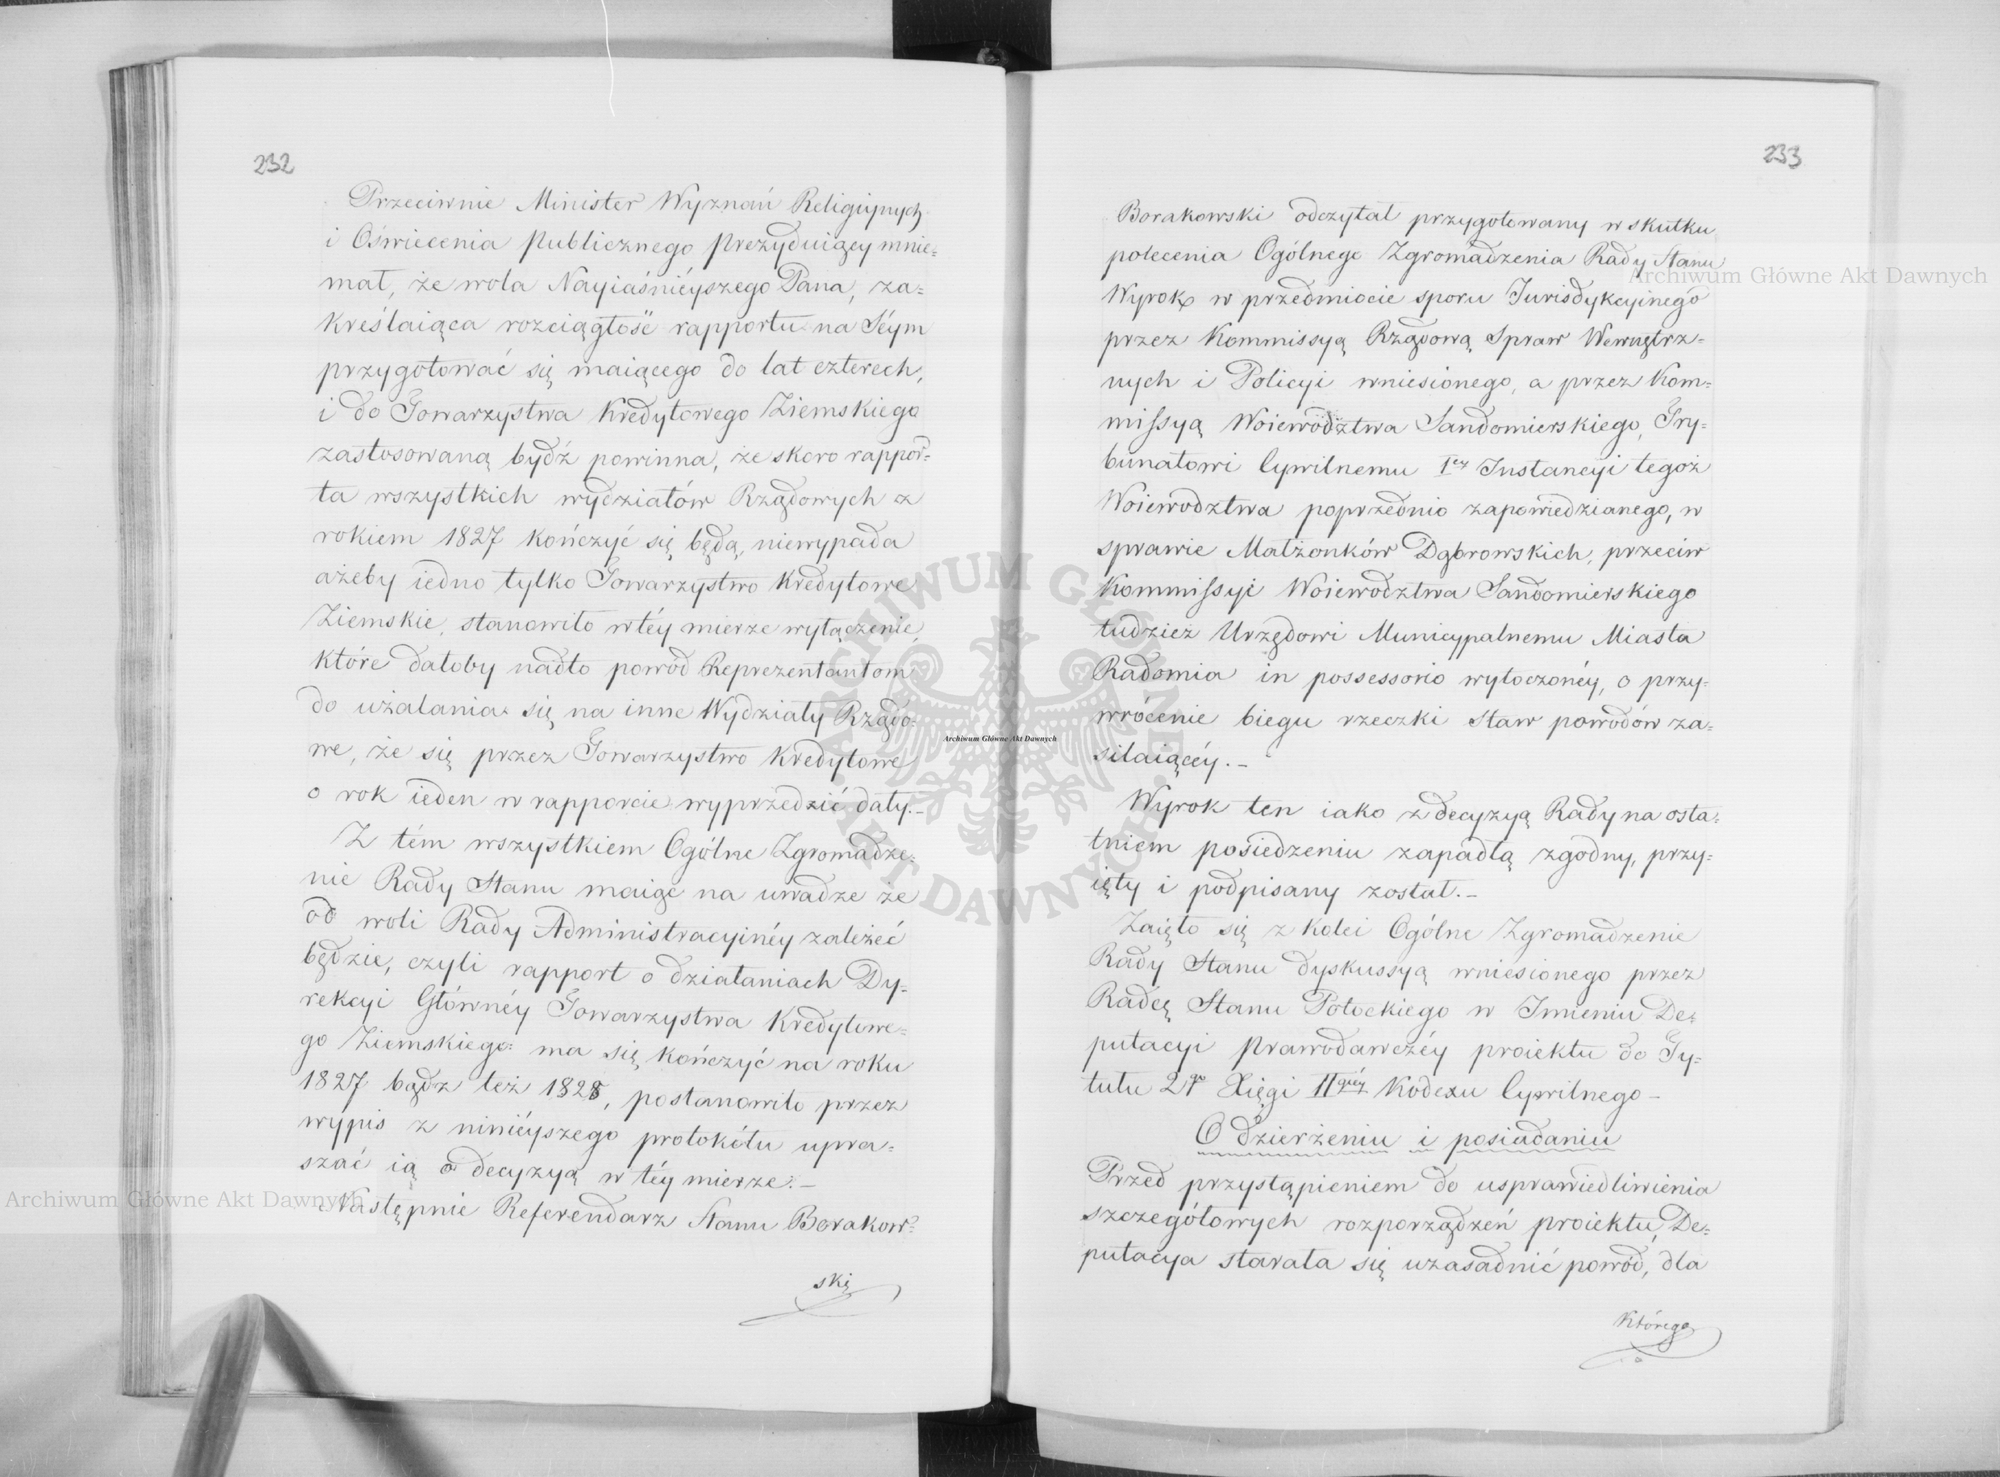 232
Przeciwnie Minister Wyznań Religiynych
i Oświecenia Publicznego prezyduiący mnie-
mał, że wola Nayiaśnieyszego Pana, za-
kreślaiąca rozciągłość rapportu na Séym
przygotować się maiącego do lat czterech,
i do Towarzystwa Kredytowego Ziemskiego
zastosowaną bydź powinna, że skoro rappor-
ta wszystkich wydziałów Rządowych z
rokiem 1827 kończyć się będą, niewypada
ażeby iedno tylko Towarzystwo Kredytowe
Ziemskie, stanowiło w téy mierze wyłączenie,
które dałoby nadto powód Reprezentantom
do użalania się na inne Wydziały Rządo-
we, że się przez Towarzystwo Kredytowe
o rok ieden w rapporcie wyprzedzić dały.-
Z tém wszystkiem Ogólne Zgromadze-
nie Rady Stanu maiąc na uwadze że
od woli Rady Administracyinéy zależeć
będzie, czyli rapport o działaniach Dy-
rekcyi Główney Towarzystwa Kredytowe-
go Ziemskiego ma się kończyć na roku
1827 bądz też 1828, postanowiło przez
wypis z ninieyszego protokółu upra-
szać ią o decyzyą w téy mierze.-
Następnie Referendarz Stanu Borakow-
ski
233
Borakowski odczytał przygotowany w skutku
polecenia Ogólnego Zgromadzenia Rady Stanu
Wyrok w przedmiocie sporu Jurisdykcyinego
przez Kommissyą Rządową Spraw Wewnętrz-
nych i Policyi wniesionego, a przez Kom-
missyą Woiewodztwa Sandomierskiego, Try-
bunałowi Cywilnemu Iey Instancyi tegoż
Woiewodztwa poprzednio zapowiedzianego, w
sprawie Małżonków Dąbrowskich, przeciw
Kommissyi Woiewodztwa Sandomierskiego
tudzież Urzędowi Municypalnemu Miasta
Radomia in possessorio wytoczonéy, o przy-
wrócenie biegu rzeczki staw powodów za-
silaiącéy.-
Wyrok ten iako z decyzyą Rady na osta-
tniem posiedzeniu zapadłą zgodny, przy-
ięty i podpisany został.-
Zaięło się z kolei Ogólne Zgromadzenie
Rady Stanu dyskussyą wniesionego przez
Radcę Stanu Potockiego w Imieniu De-
putacyi Prawodawczéy proiektu do Ty-
tułu 2go Xięgi IIgiéy Kodexu Cywilnego-
O dzierżeniu i posiadaniu
Przed przystąpieniem do usprawiedliwienia
szczegółowych rozporządzeń proiektu, De-
putacya starała się uzasadnić powód, dla
którego
Archiwum Główne Akt Dawnych
Archiwum Główne Akt Dawnych
Archiwum Główne Akt Dawnych
ARCHIWUM GŁÓWNE AKT DAWNYCH